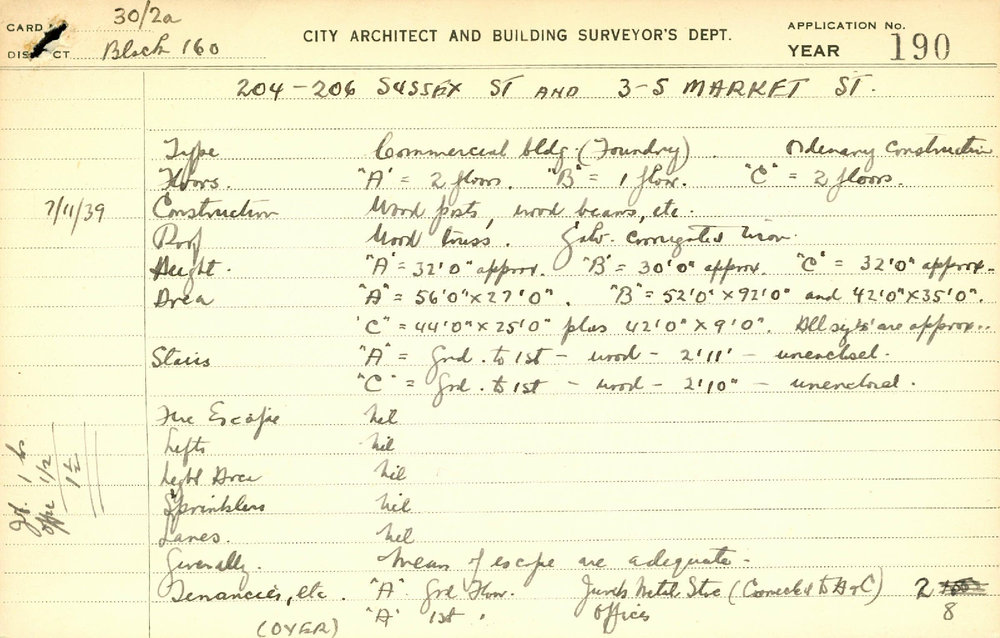 CARD 30/2a
CITY ARCHITECT AND BUILDING SURVEYOR'S DEPT.
APPLICATION No.
DISTRICT Block 160
YEAR 190
204-206 SUSSEX ST AND 3-5 MARKET ST.
Type Commercial bldg. (Foundry). Ordenary Construction
Floors. "A" = 2 floors. "B" = 1 floor. "C" = 2 floors.
7/11/39 Construction Wood posts, wood beams, etc.
Roof Wood truss. Galv. corrugated iron.
Height. "A" = 32'0" approx. "B" = 30'0" approx. "C" = 32'0" approx.
Area "A" = 56'0" x 27'0". "B" = 52'0" x 92'0" and 42'0" x 35'0".
"C" = 44'0" x 25'0" plus 42'0" x 9'0". All are approx..
Stairs "A" = Grd. to 1st - wood - 2'11" - unenclosed.
"C" = Grd. to 1st - wood - 2'10" - unenclosed.
Fire Escape nil
Lifts nil
Light Area nil
Sprinklers nil
Lanes. nil
Generally. Means of escape are adequate.
Tenancies, etc. "A" Grd Floor. Metal Store (Connected to A & C) 2
(OVER) "A" 1st " Offices 8
1 hr
offce 1/2
1 1/2